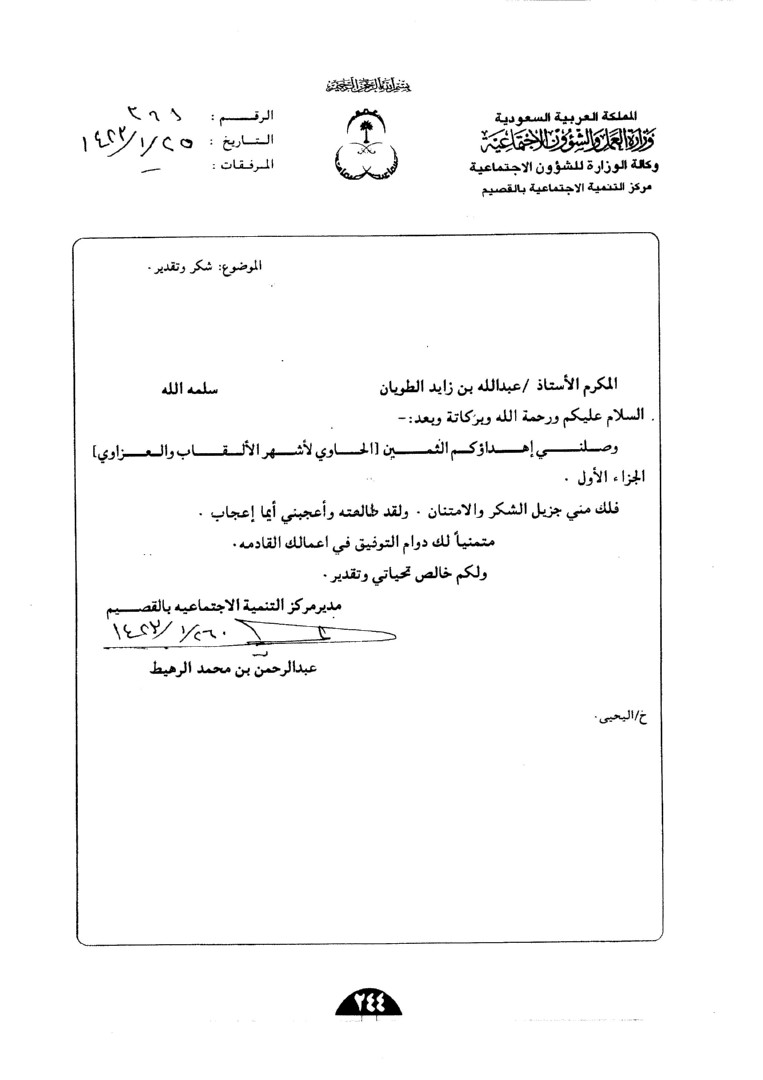 بسم الله الرحمن الرحيم
المملكة العربية السعودية
وزارة العمل والشؤون الاجتماعية
وكالة الوزارة للشؤون الاجتماعية
مركز التنمية الاجتماعية بالقصيم
الرقــــم :
التـاريخ : ١٤٢٣/١/٢٥
المرفقـات : –
الموضوع: شكر وتقدير .
المكرم الأستاذ /عبدالله بن زايد الطويان سلمه الله
السلام عليكم ورحمة الله وبركاتة وبعد:-
وصلنـــي إهـــداؤكـم الثمـــين [الحاوي لأشهر الألـقــاب والـعـزاوي]
الجزاء الأول .
فلك مني جزيل الشكر والامتنان . ولقد طالعته وأعجبني أيما إعجاب .
متمنياً لك دوام التوفيق في اعمالك القادمه.
ولكم خالص تحياتي وتقدير .
مديرمركز التنمية الاجتماعيه بالقصـــيم
١٤٢٣/١/٢٦
عبدالرحمن بن محمد الرهيط
خ/اليحيى.
٢٤٤